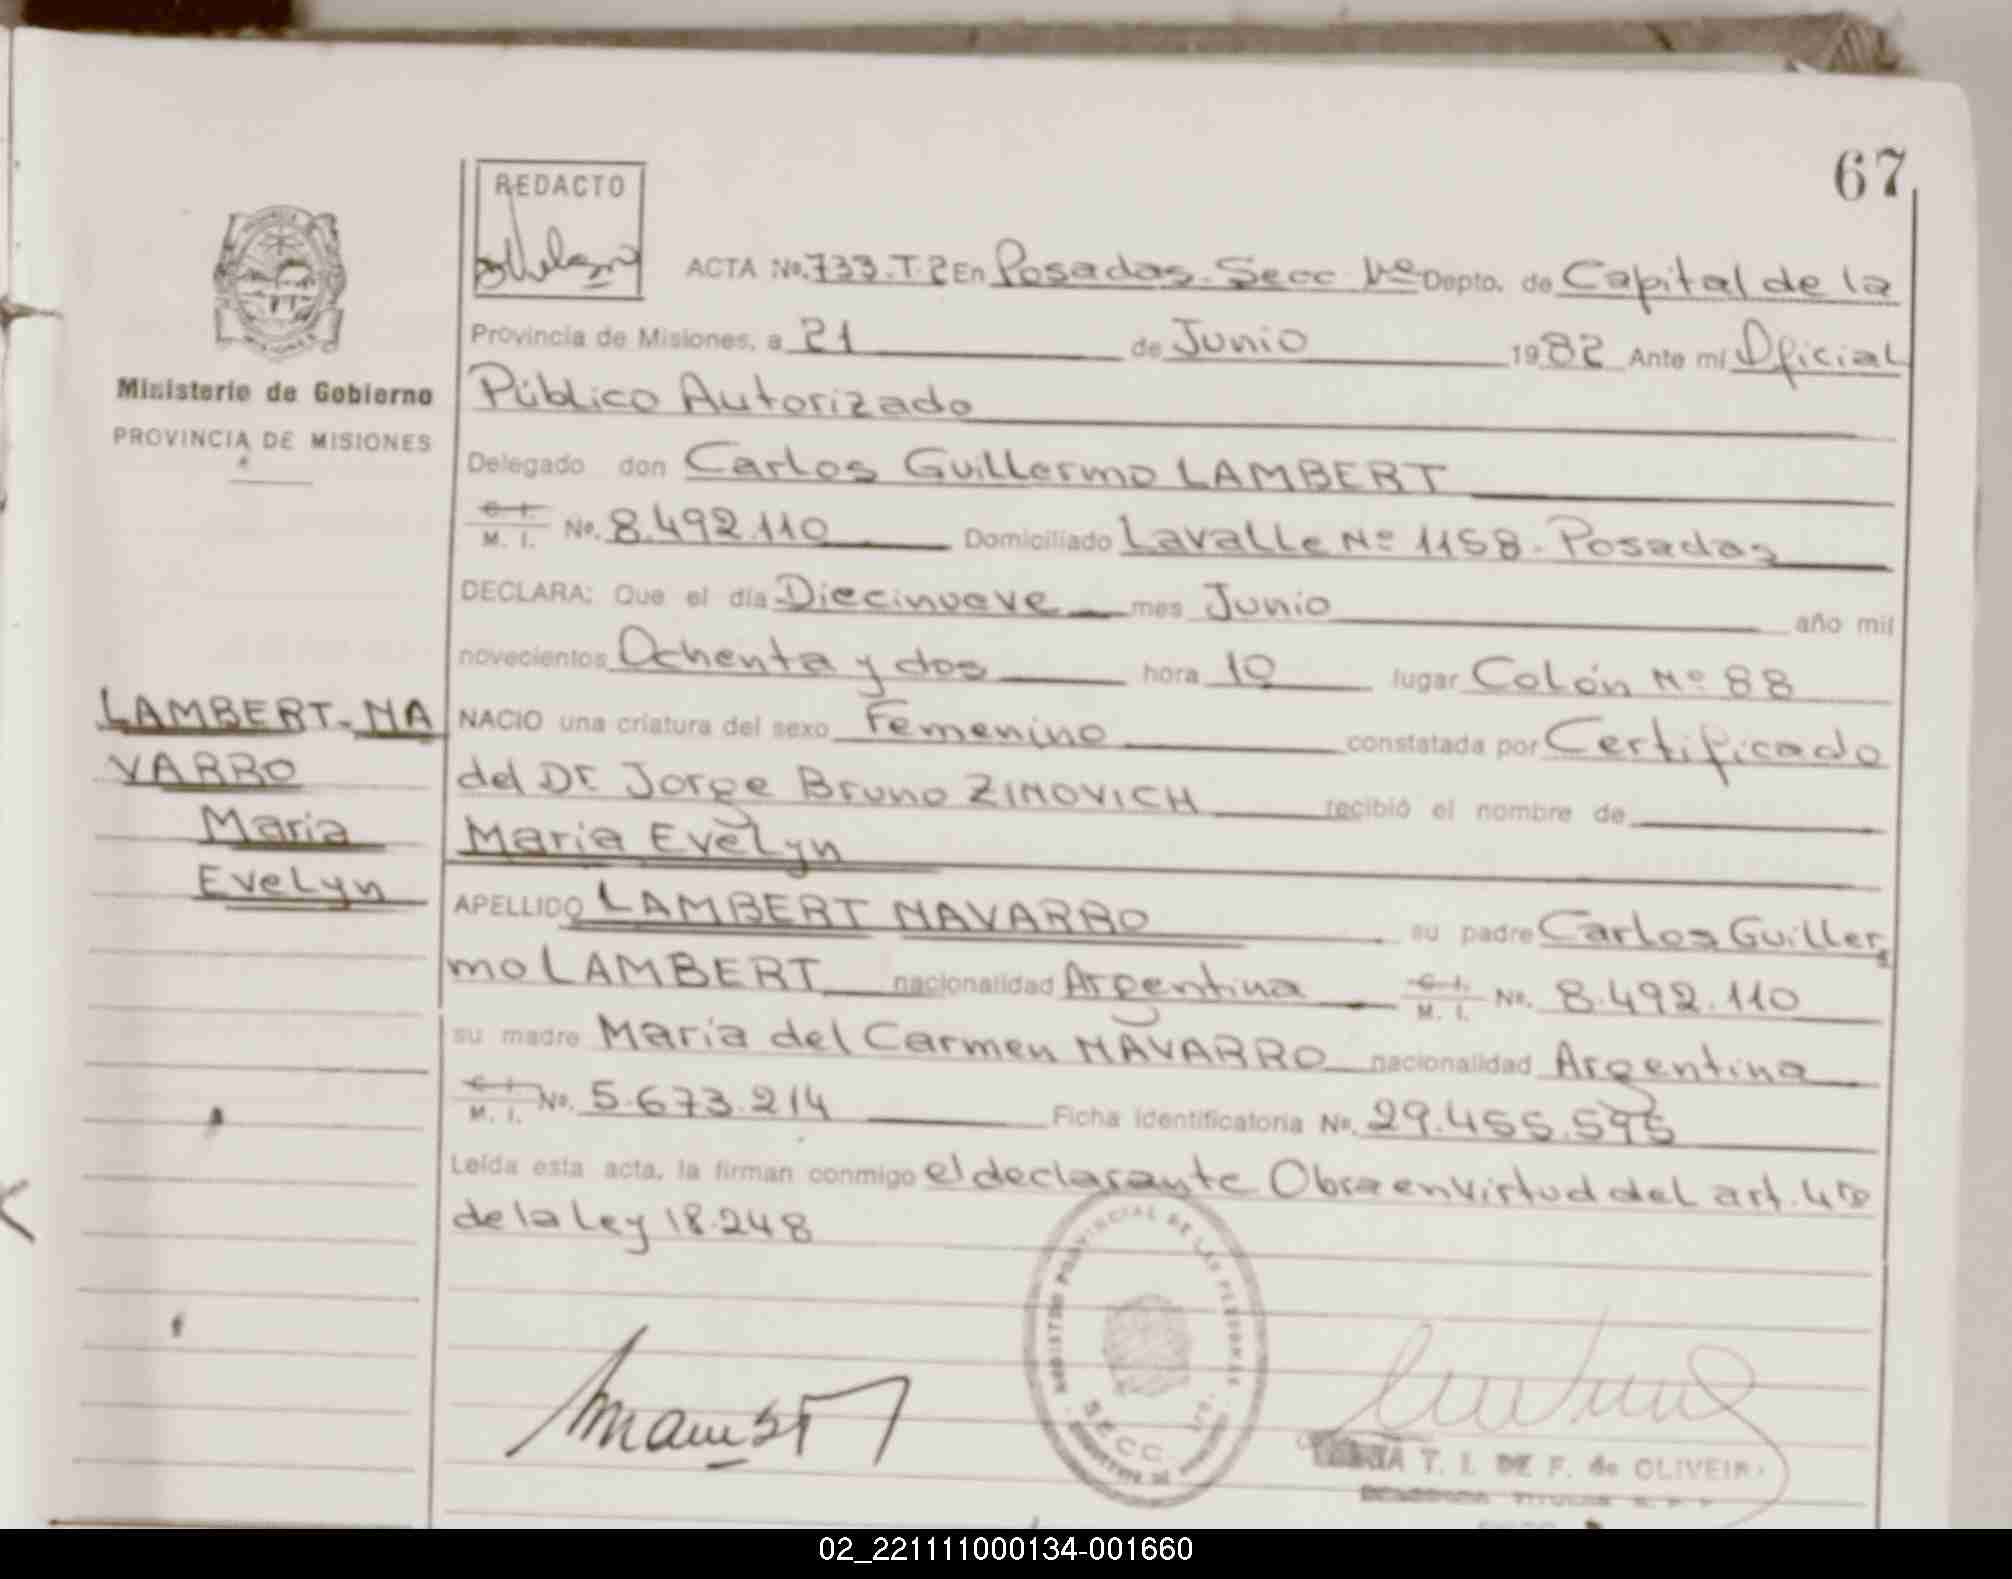 67
REDACTO
ACTA No. 733. T. 2 En Posadas. Secc 1ª Depto. de Capital de la
Provincia de Misiones, a 21 de Junio 1982 Ante mi Oficial
Ministerio de Gobierno
PROVINCIA DE MISIONES
Público Autorizado
Delegado don Carlos Guillermo LAMBERT
C. I.
M. I. No. 8.492.110 Domiciliado Lavalle Nº 1158. Posadas
DECLARA: Que el día Diecinueve mes Junio año mil
novecientos Ochenta y dos hora 10 lugar Colón Nº 88
LAMBERT-NA
VARRO
Maria
Evelyn
NACIO una criatura del sexo Femenino constatada por Certificado
del Dr. Jorge Bruno ZINOVICH recibió el nombre de
Maria Evelyn
APELLIDO LAMBERT NAVARRO su padre Carlos Guiller
mo LAMBERT nacionalidad Argentina C. I.
M. I. No. 8.492.110
su madre Maria del Carmen NAVARRO nacionalidad Argentina
C. I.
M. I. No. 5.673.214 Ficha identificatoria No. 29.455.595
Leída esta acta, la firman conmigo el declarante Obra en virtud del art. 4to
de la Ley 18.248
REGISTRO PROVINCIAL DE LAS PERSONAS
SECC 1ra.
T. I. DE F. de OLIVEIRA
02_221111000134-001660